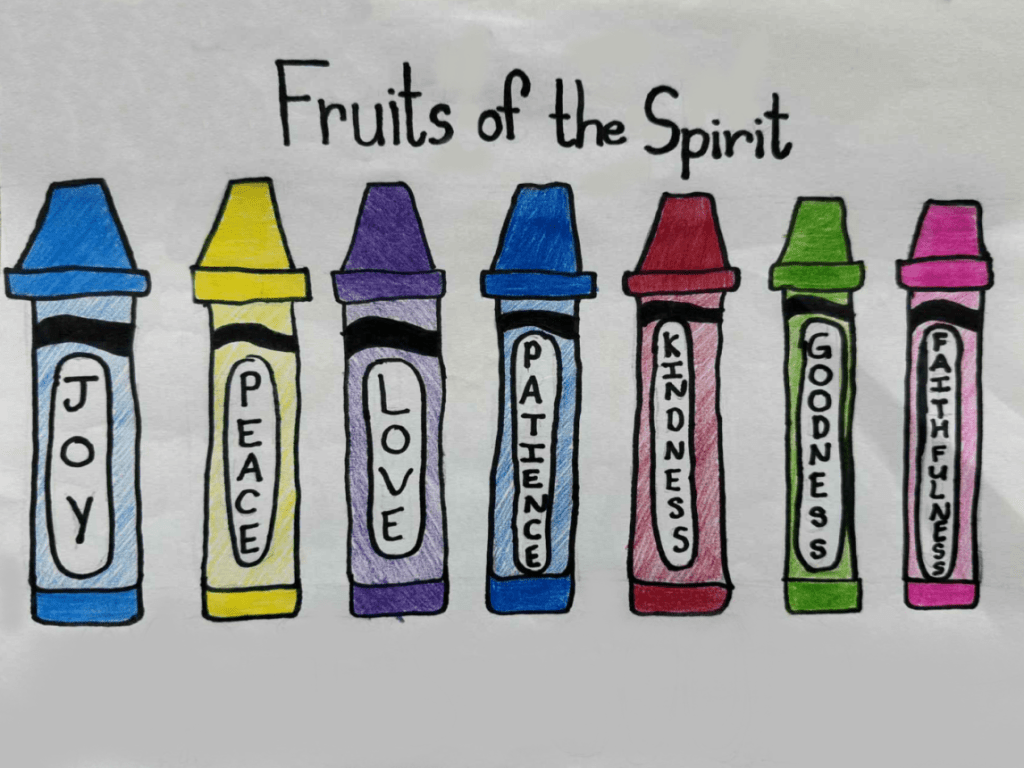 Fruits of the Spirit
JOY
PEACE
LOVE
PATIENCE
KINDNESS
GOODNESS
FAITHFULNESS